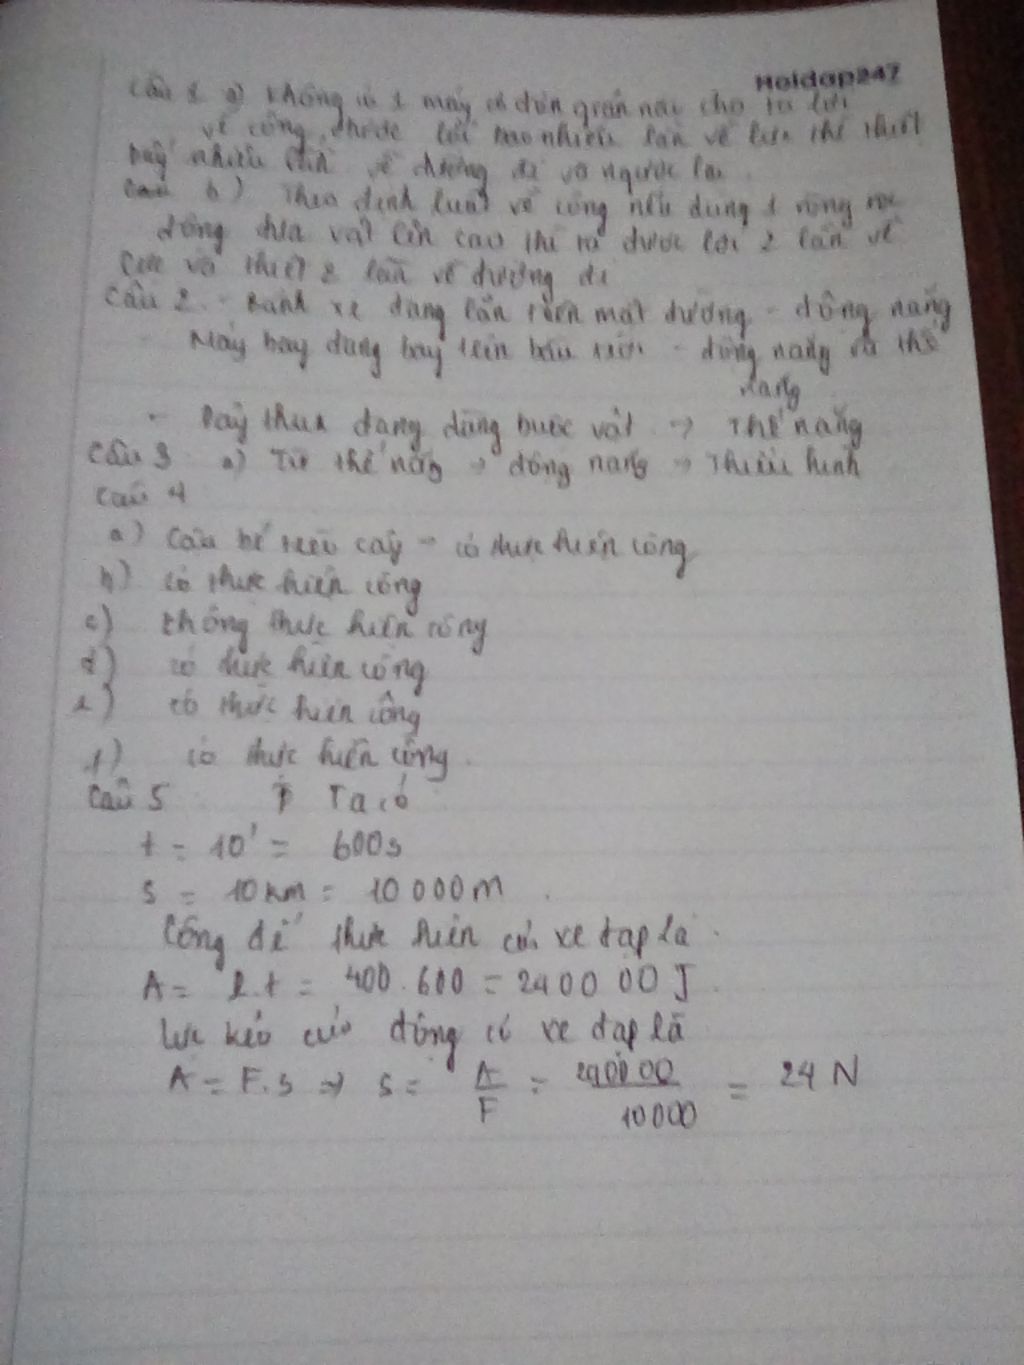 Hoidap247
Câu 1 a) Không có 1 máy cơ đơn giản nào cho ta lợi
về công, được lợi bao nhiêu lần về lực thì thiệt
bấy nhiêu lần về đường đi và ngược lại.
Câu b) Theo định luật về công nếu dùng 1 ròng rọc
động đưa vật lên cao thì ta được lợi 2 lần về
lực và thiệt 2 lần về đường đi
Câu 2 - Bánh xe đang lăn trên mặt đường - động năng
- Máy bay đang bay trên bầu trời - động năng và thế
năng
- Dây thun đang dùng buộc vật → Thế năng
Câu 3 a) Từ thế năng → động năng →
Câu 4
a) Cậu bé trèo cây → có thực hiện công
b) có thực hiện công
c) không thực hiện công
d) có thực hiện công
e) có thực hiện công
f) có thực hiện công.
Câu 5 Ta có
t = 10' = 600s
s = 10km = 10 000m.
Công để thực hiện của xe đạp là
A = = 400.600 = 2400 00 J
Lực kéo của động cơ xe đạp là
A = F.s ⇒ s = A/F = 2400 00/10 000 = 24 N